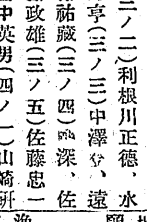 ニノ二)利根川正德、水
亨(三ノ三)中澤 、遠
祐藏(三ノ四) 深、佐
政雄(三ノ五)佐藤忠一
中英男(四ノ一)山崎班